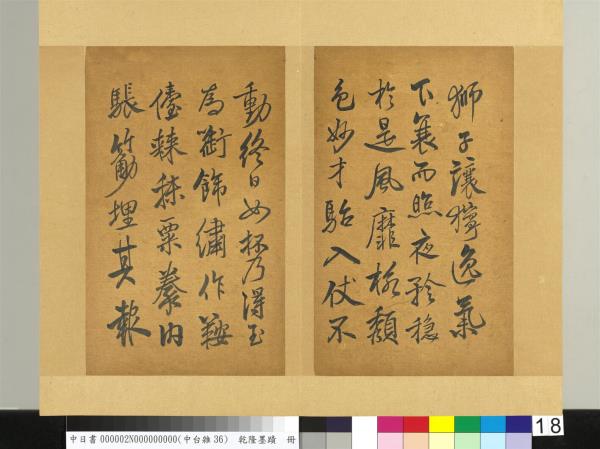 獅子讓獰逸氣
下襄而照夜矜穩
於是風靡頹
色妙才駘入仗不
動終日乃得玉
為銜飾繡作鞍
棘秣粟豢內
埋其報
中日書 000002N000000000(中台雜36) 乾隆墨蹟 冊
18